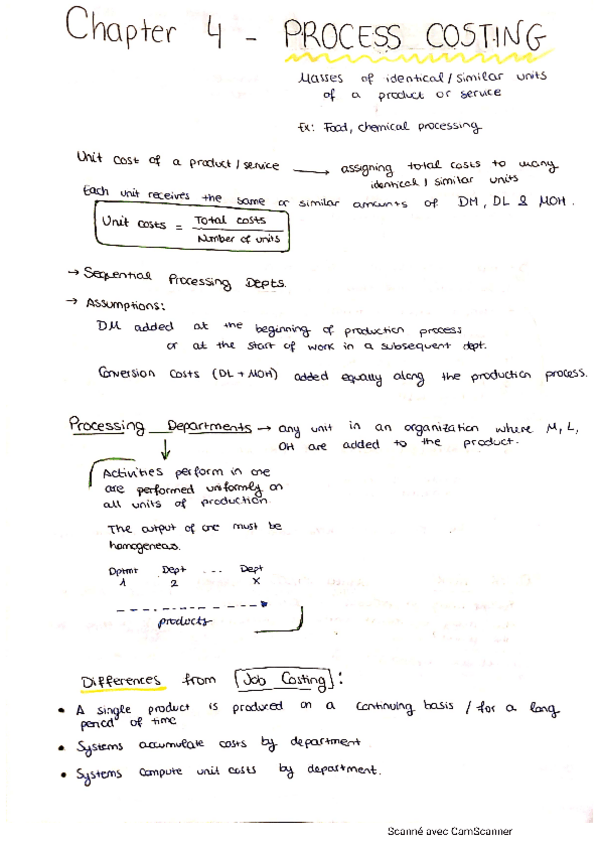 Chapter 4 - PROCESS COSTING
Masses of identical / similar units
of a product or service
Ex: Food, chemical processing
Unit cost of a product / service → assigning total costs to many
identical / similar units
Each unit receives the same or similar amounts of DM, DL & MOH.
Unit costs = Total costs
Number of units
→ Sequential Processing Depts.
→ Assumptions:
DM added at the beginning of production process
or at the start of work in a subsequent dept.
Conversion Costs (DL + MOH) added equally along the production process.
Processing Departments → any unit in an organization where M, L,
OH are added to the product.
Activities perform in one
are performed uniformly on
all units of production
The output of one must be
homogeneas.
Dptmt Dept ... Dept
1 2 X
products
Differences from Job Costing:
• A single product is produced on a continuing basis / for a long
period of time
• Systems accumulate costs by department
• Systems compute unit costs by department.
Scanné avec CamScanner